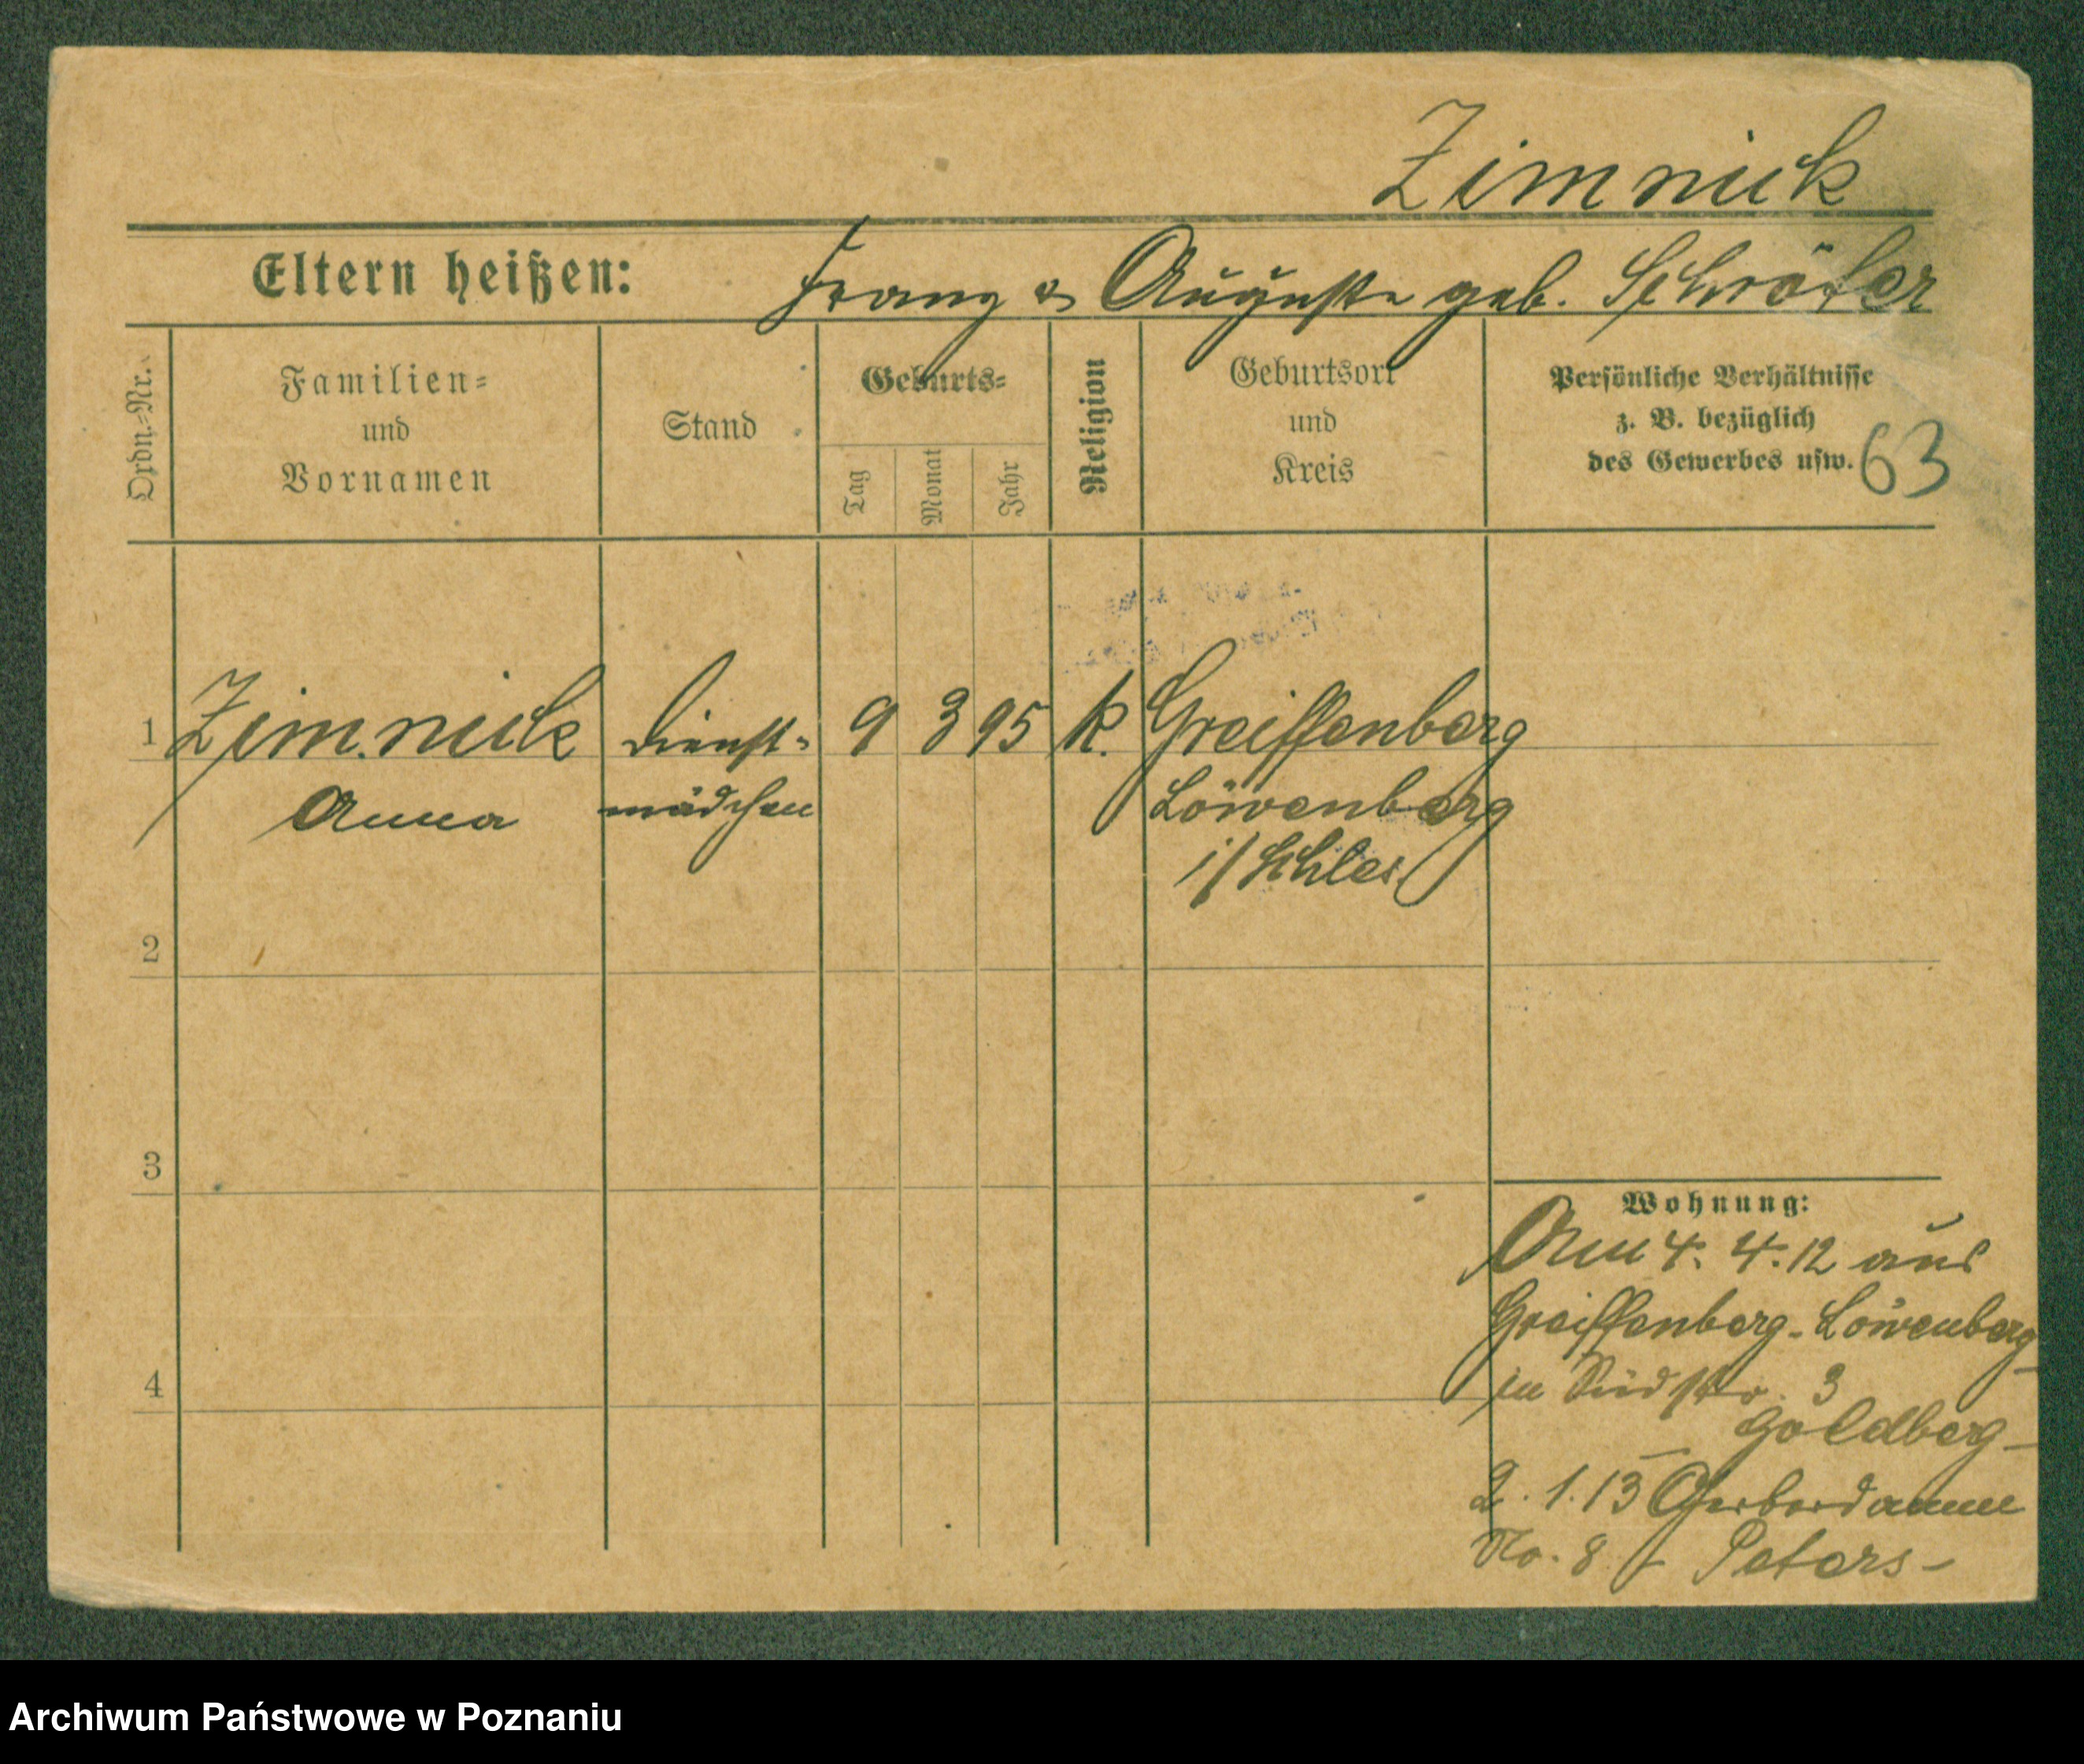 Zimnick
Eltern heißen: Franz & Auguste geb. Schröter
Ordn.-Nr.
Familien-
und
Vornamen
Stand
Geburts-
Tag
Monat
Jahr
Religion
Geburtsort
und
Kreis
Persönliche Verhältnisse
z. B. bezüglich
des Gewerbes usw.
63
1 Zimnick Dienst- 9 3 95 K. Greiffenberg
Anna mädchen Löwenberg
i/Schles
2
3
4
Wohnung:
Am 4. 4. 12 aus
Greiffenberg-Löwenberg
in Südstr. 3
Goldberg-
2. 1. 13 Gerberdamm
No. 8 - Peters-
Archiwum Państwowe w Poznaniu